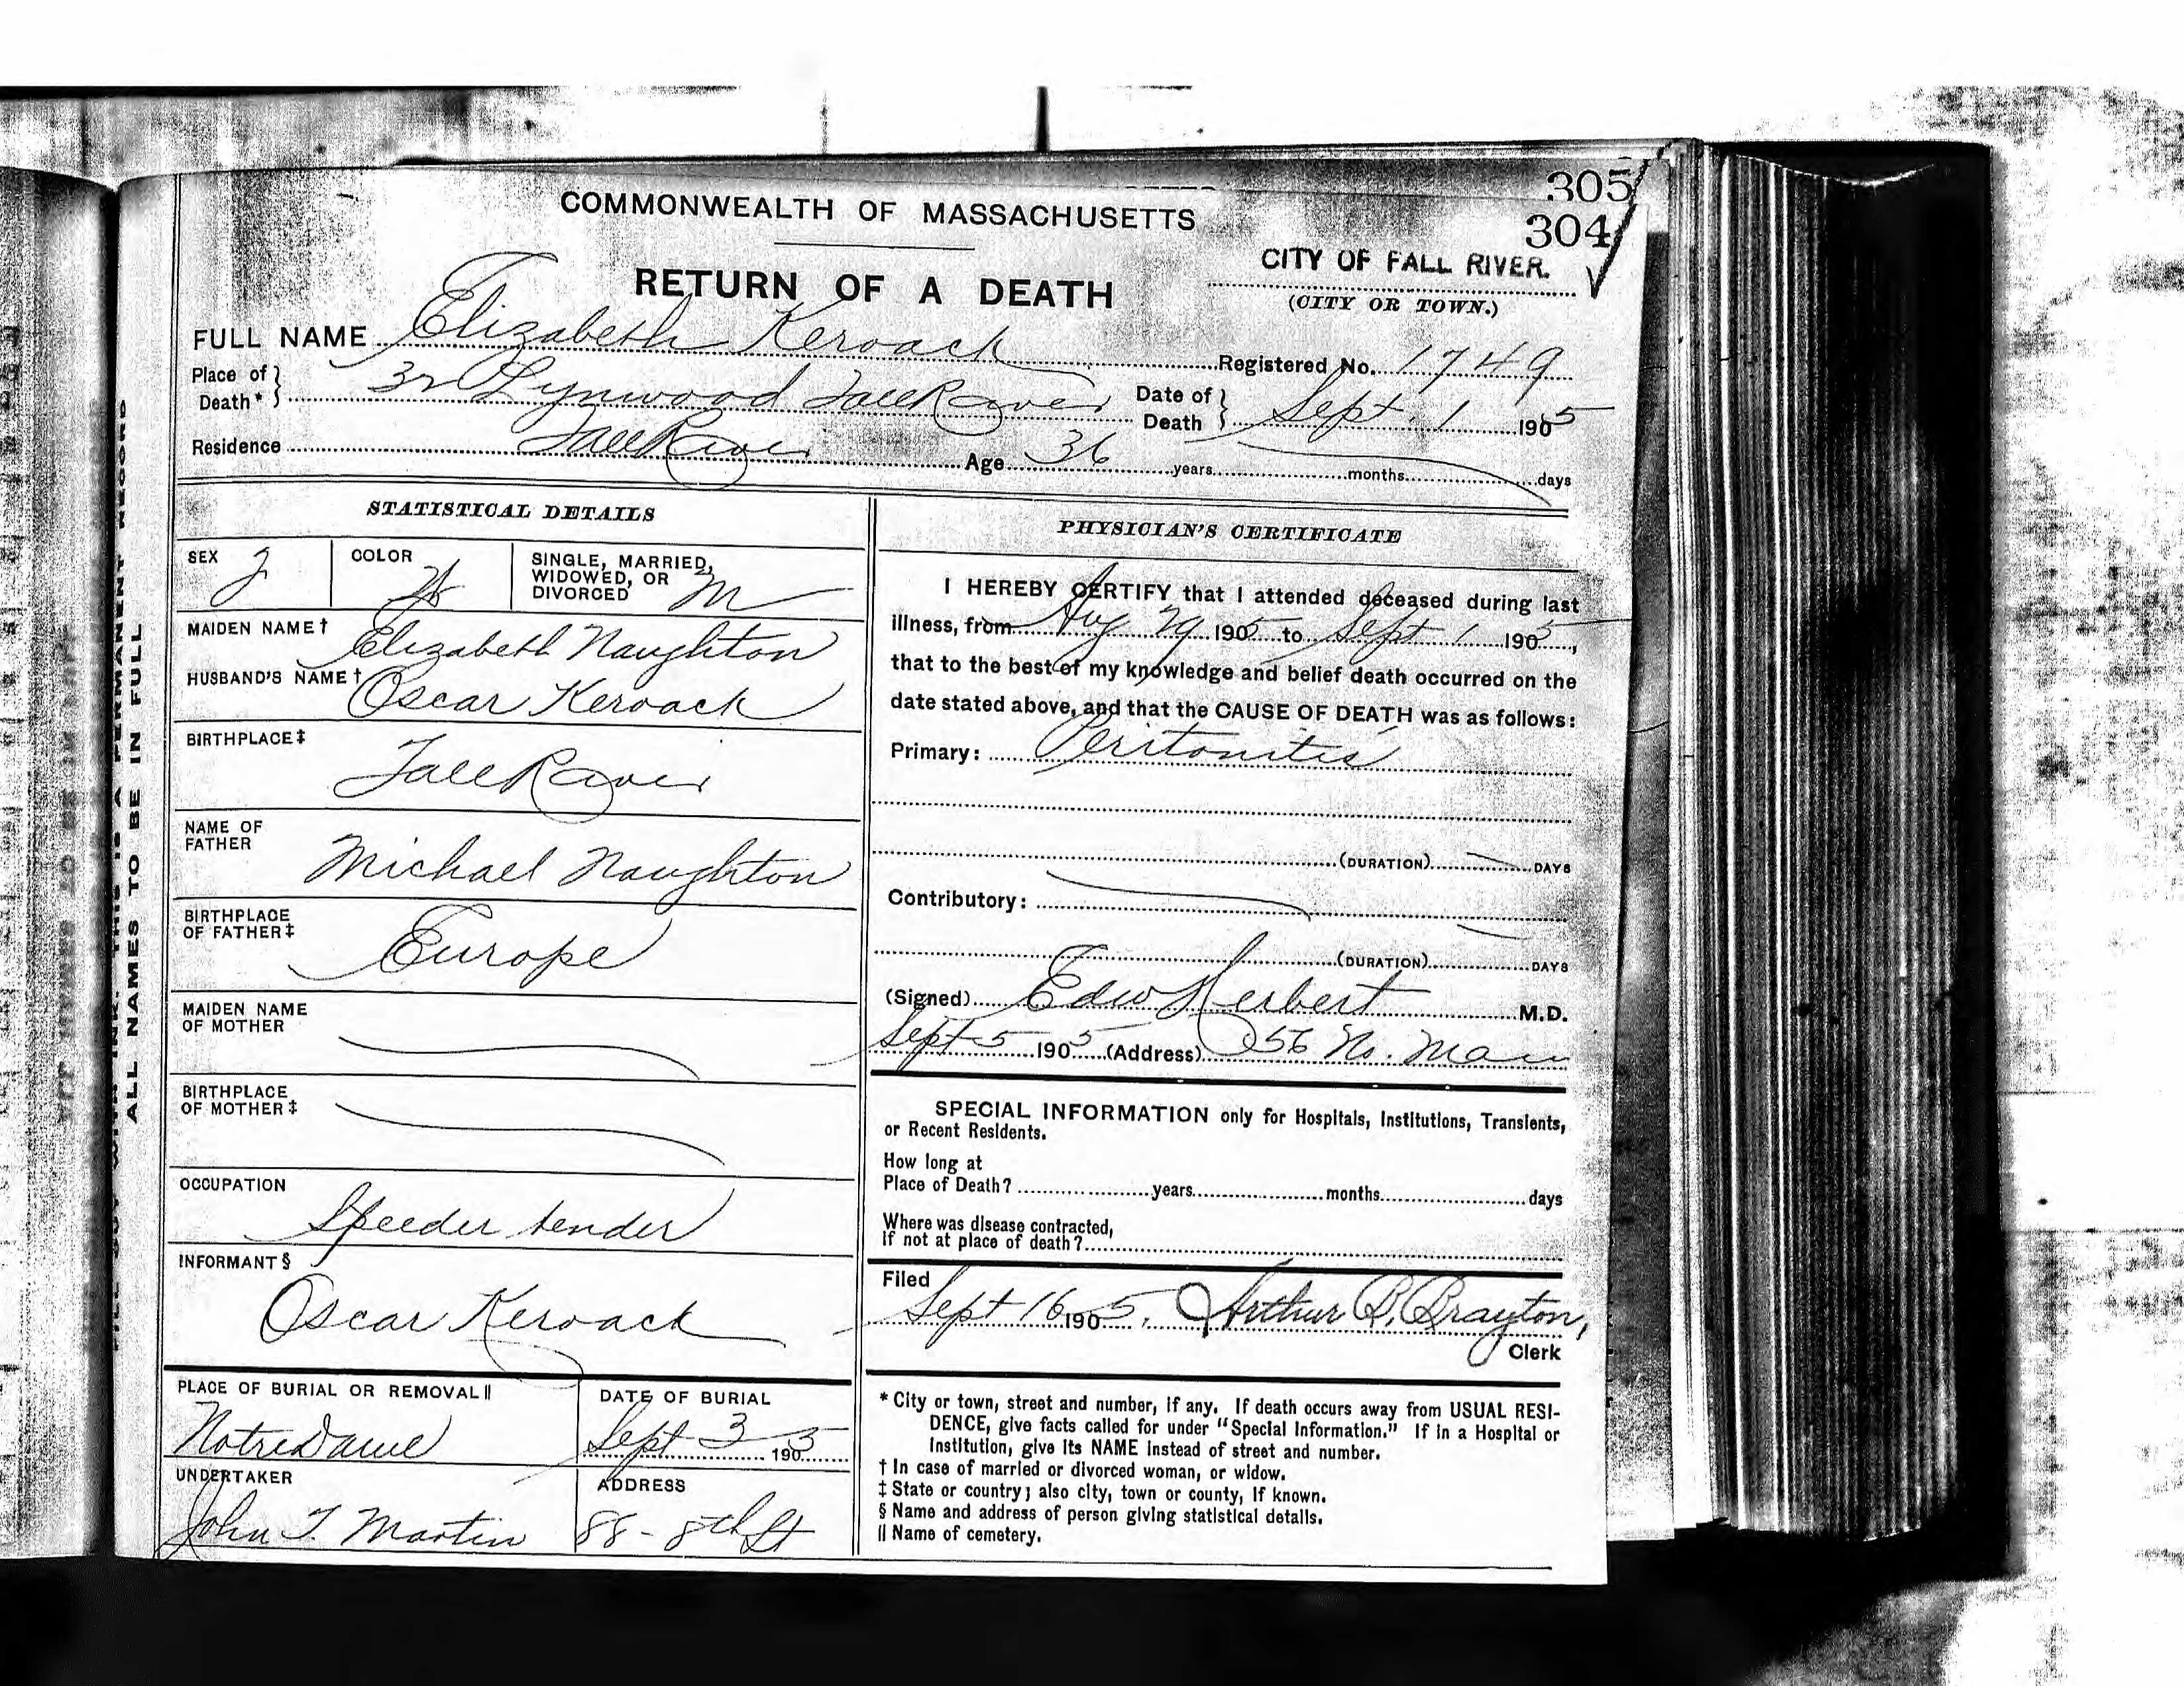 305
304
COMMONWEALTH OF MASSACHUSETTS
CITY OF FALL RIVER.
RETURN OF A DEATH
(CITY OR TOWN.)
FULL NAME Elizabeth Keroack Registered No. 1749
Place of Death* 32 Lynwood Fall River Date of Death Sept. 1 1905
Residence Fall River Age 36 years months days
STATISTICAL DETAILS
SEX F
COLOR W
SINGLE, MARRIED, WIDOWED, OR DIVORCED M
MAIDEN NAME† Elizabeth Naughton
HUSBAND'S NAME† Oscar Keroack
BIRTHPLACE‡ Fall River
NAME OF FATHER Michael Naughton
BIRTHPLACE OF FATHER‡ Europe
MAIDEN NAME OF MOTHER
BIRTHPLACE OF MOTHER‡
OCCUPATION Speeder tender
INFORMANT§ Oscar Keroack
PLACE OF BURIAL OR REMOVAL‖ Notre Dame
DATE OF BURIAL Sept 3 1905
UNDERTAKER John T. Martin
ADDRESS 88 - 8th St
PHYSICIAN'S CERTIFICATE
I HEREBY CERTIFY that I attended deceased during last
illness, from Aug 29 1905 to Sept 1 1905,
that to the best of my knowledge and belief death occurred on the
date stated above, and that the CAUSE OF DEATH was as follows:
Primary: Peritonitis
(DURATION) DAYS
Contributory:
(DURATION) DAYS
(Signed) Edw Herbert M.D.
Sept 5 1905 (Address) 256 No. Main
SPECIAL INFORMATION only for Hospitals, Institutions, Transients,
or Recent Residents.
How long at
Place of Death? years months days
Where was disease contracted,
If not at place of death?
Filed Sept 16 1905, Arthur B. Brayton,
Clerk
* City or town, street and number, if any. If death occurs away from USUAL RESI-
DENCE, give facts called for under "Special Information." If in a Hospital or
Institution, give its NAME instead of street and number.
† In case of married or divorced woman, or widow.
‡ State or country; also city, town or county, if known.
§ Name and address of person giving statistical details.
‖ Name of cemetery.
ALL NAMES TO BE IN FULL